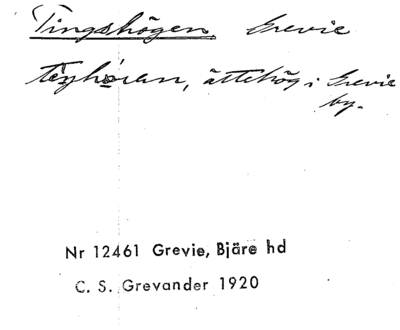 Tingshögen, Grevie
ättehög i Grevie
by.
Nr 12461 Grevie, Bjäre hd
C. S. Grevander 1920